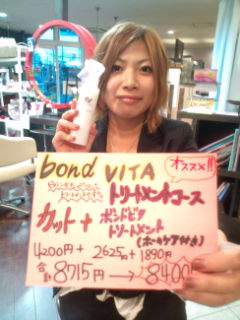 bond VITA
オススメ!!
トリートメントコース
カット + ボンドビタ
トリートメント
(ホームケア付き)
4200円 + 2625円 + 1890円
合計 8715円 → 8400